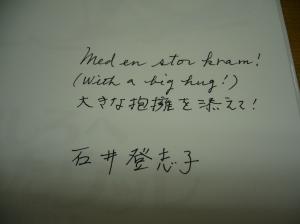 Med en stor kram!
(With a big hug!)
大きな抱擁を添えて!
石井登志子